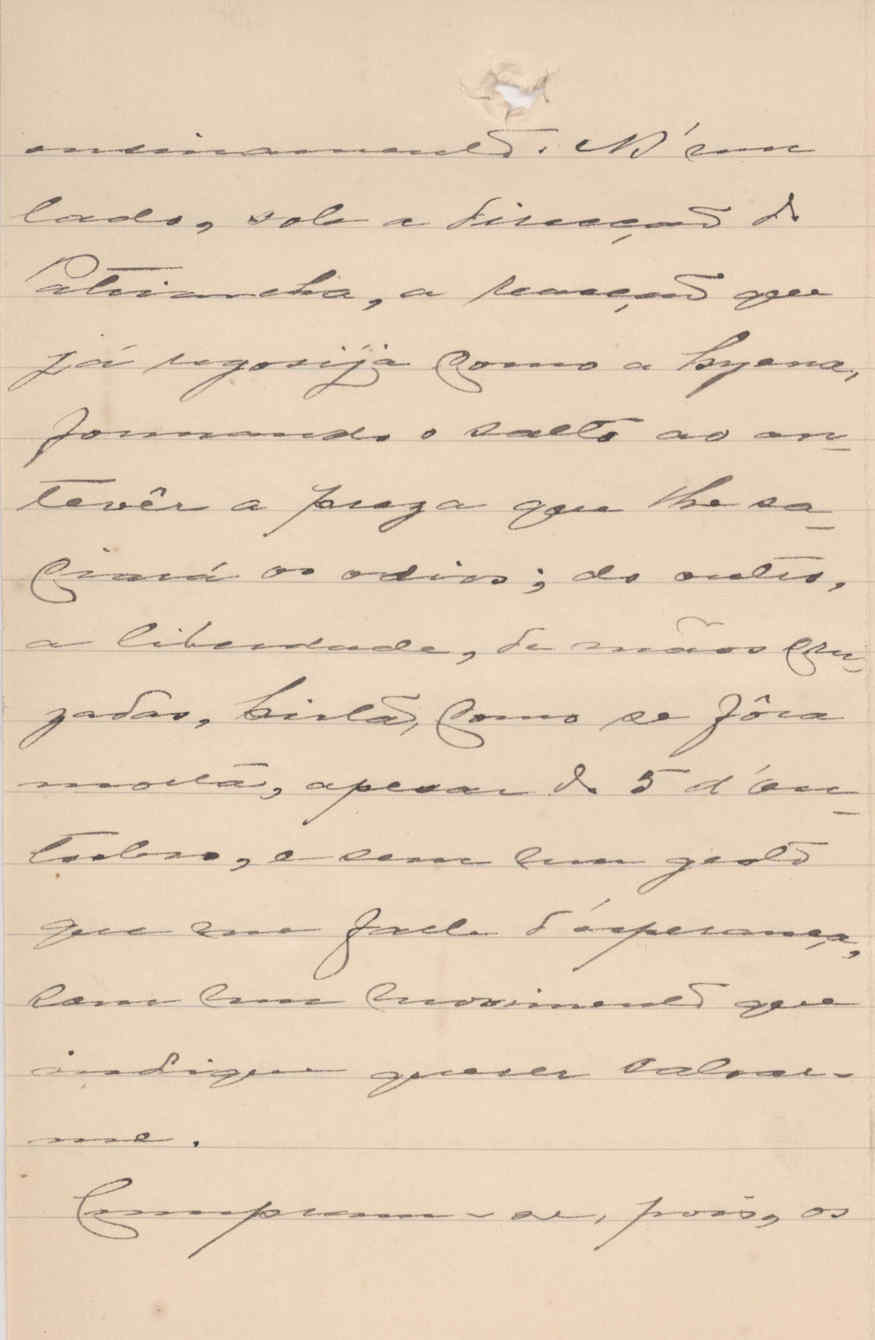 ensinamento. N'um
lado, sob a direcção do
Patriarcha, a reacção que
já regosija como a hyena,
formando o salto ao an-
tevêr a preza que lhe sa-
ciará os odios; do outro,
a liberdade, de mãos cru-
zadas, hirta, como se fôra
morta, apesar do 5 d'Ou-
tubro, e sem um gesto
que me falle d'esperança,
sem um movimento que
indique querer salvar-
me.
Cumpram-se, pois, os